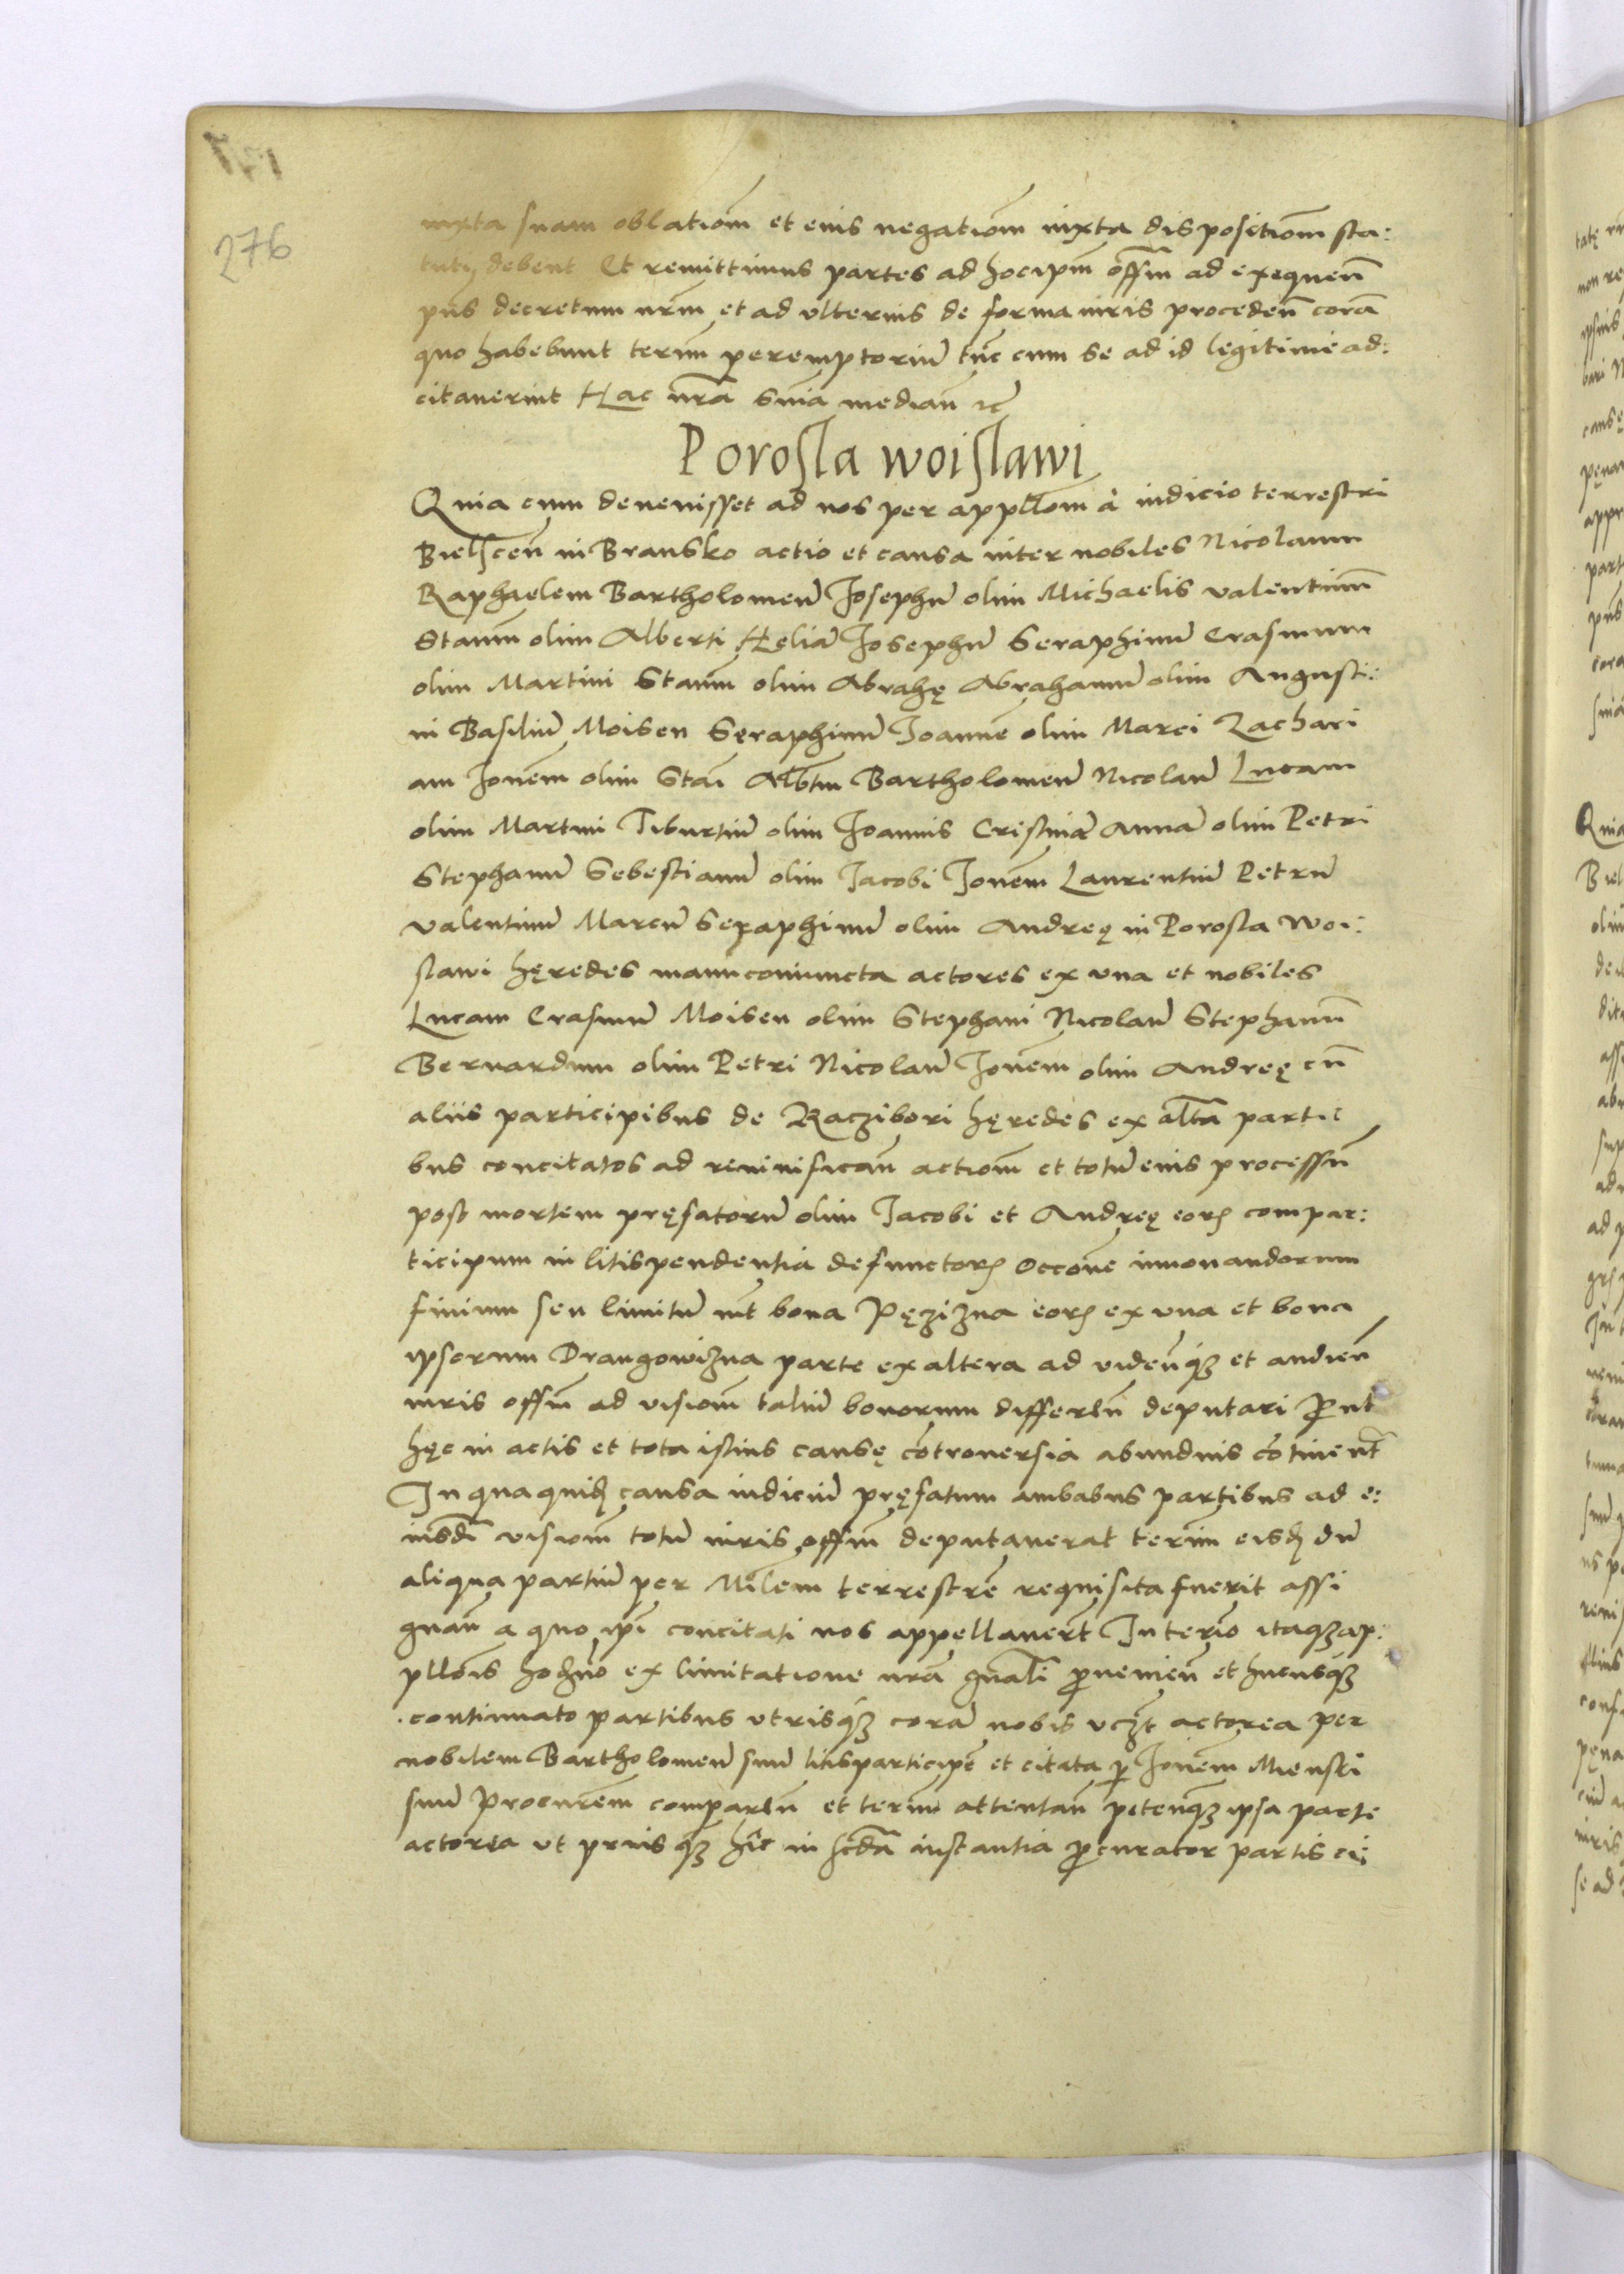 276
iuxta suam oblationem et eius negationem iuxta dispositionem sta:
tuti debent Et remittimus partes ad hocipm offm ad exequen
pns decretum nrm et ad ulterius de forma iuris proceden cora
quo habebunt termm peremptoriu tunc cum se ad id legitime ad:
citaverint Hac nra snia median etc
Porosla woislawi
Quia cum devenisset ad nos per appllom à iudicio terrestri
Bielscen in Bransko actio et causa inter nobiles Nicolaum
Raphaelem Bartholomeu Josephu olim Michaelis Valentinum
Stanm olim Alberti Helia Josephu Seraphinu Erasmum
olim Martini Stanm olim Abrahę Abrahamu olim Augusti:
ni Basiliu Moisen Seraphinu Joanne olim Marci Zachari
am Jonem olim Stai Albtm Bartholomeu Nicolau Lucam
olim Martini Tiburtiu olim Joannis Cristina Anna olim Petri
Stephanu Sebestianu olim Jacobi Jonem Laurentiu Petru
Valentinu Marcu Seraphinu olim Andreę in Porosla Woi:
slawi hęredes manu coniuncta actores ex una et nobiles
Lucam Erasmu Moisen olim Stephani Nicolau Stephanum
Bernardum olim Petri Nicolau Jonem olim Andreę cu
aliis participibus de Raczibori hęredes ex alta parti
bus concitatos ad revivifican actiom et totu eius processu
post mortem pręfatoru olim Jacobi et Andreę eor compar:
ticipum in litispendentia defunctor occone innovandorum
finium seu limitu int bona Pęzizna eor ex una et bona
ipsorum Drangowizna parte ex altera ad videnq et audien
iuris offm ad visiom taliu bonorum differen deputari Put
hęc in actis et tota istius causę cotroversia abundius cotinent
In qua quid causa iudiciu pręfatum ambabus partibus ad e:
iusdi visiom totu iuris offm deputaverat termm eisd du
aliqua partiu per Milem terrestre requisita fuerit assi
gnan a quo ipi concitati nos appellavert In termo itaq ap:
pllois hodno ex limitatione nra gnali provenien et hucusq
continuato partibus utrisq cora nobis uczt actorea per
nobilem Bartholomeu suu litisparticipe et citata p Jonem Mienski
suu Procurem comparen et termm attentan petenq ipsa parte
actorea ut prius q hic in scda instantia procurator partis ci